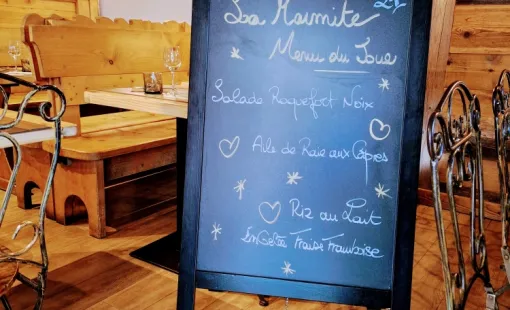 La Marmite
Menu du Jour
Salade Roquefort Noix
Aile de Raie aux Câpres
Riz au Lait
Fraise Framboise